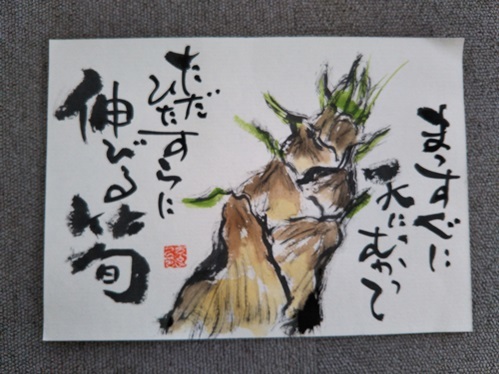 まっすぐに
天にむかって
ただ
ひたすらに
伸びる筍